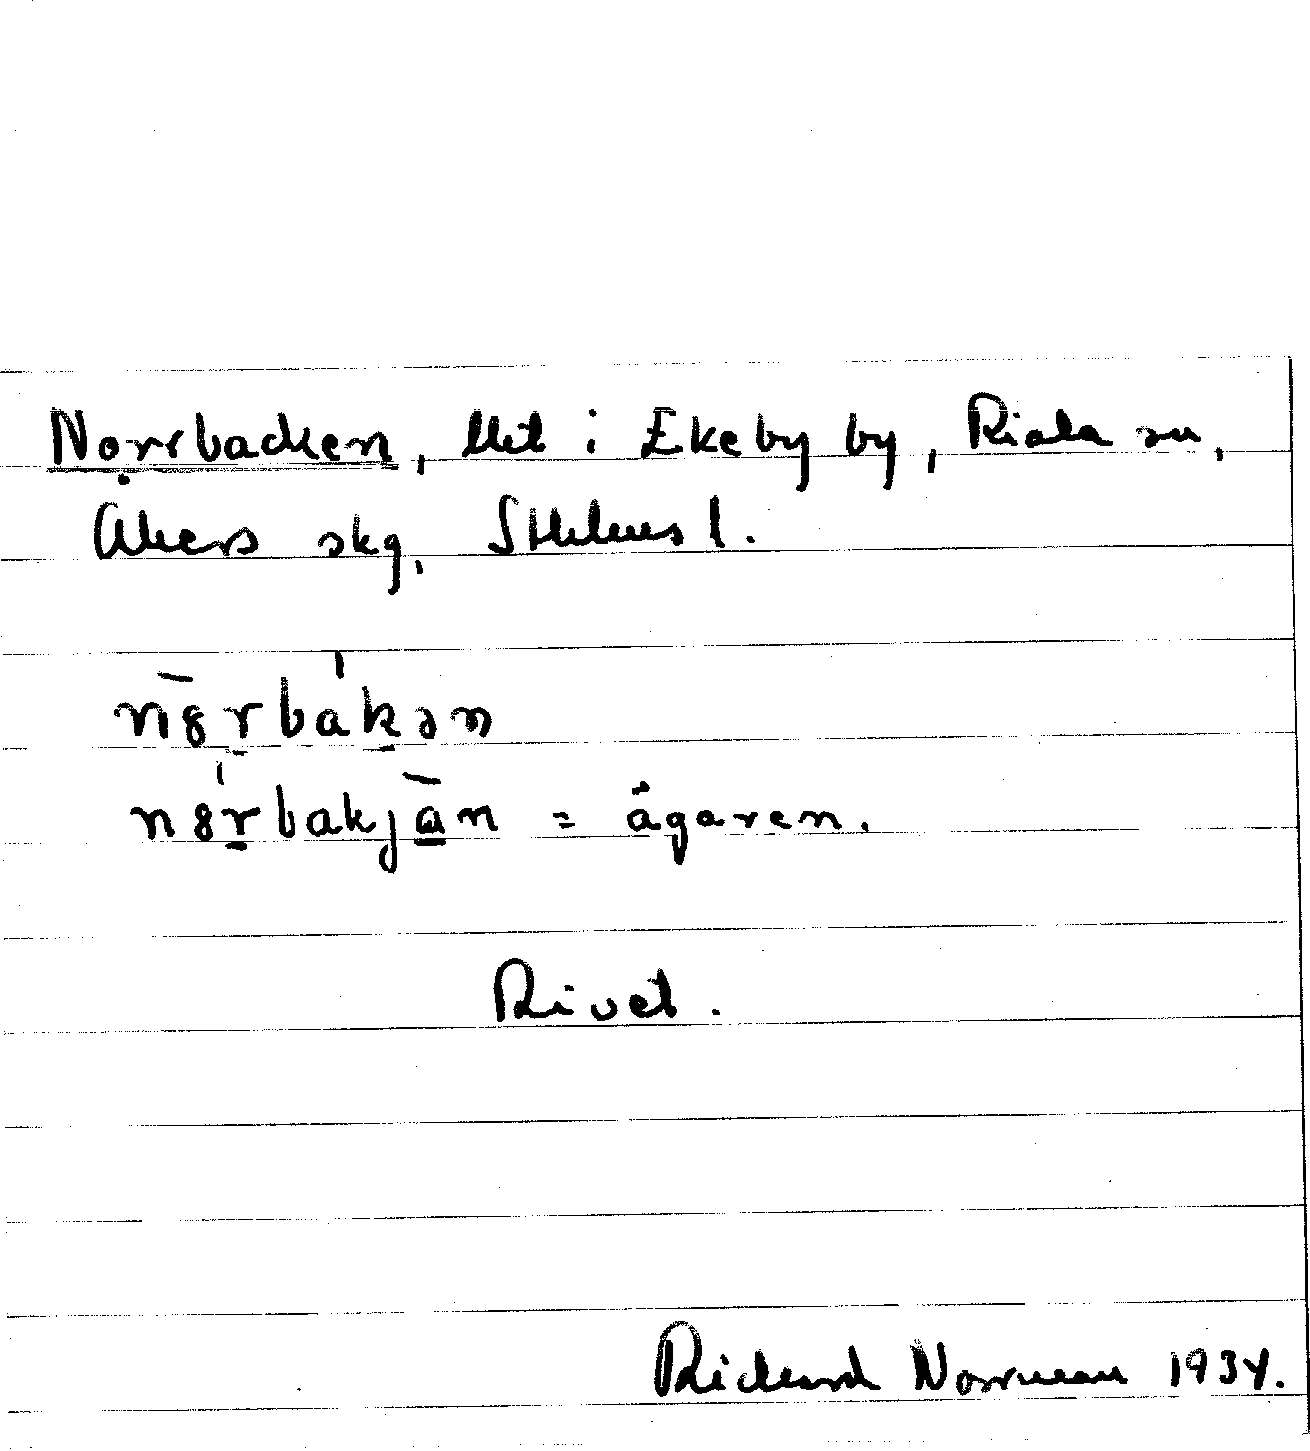 Norrbacken, lht i Ekeby by, Riala sn,
Åkers skg, Sthlms l.
nȣrbakən
nȣrbakjɑn = ägaren.
Rivet.
Rickard Norrman 1934.